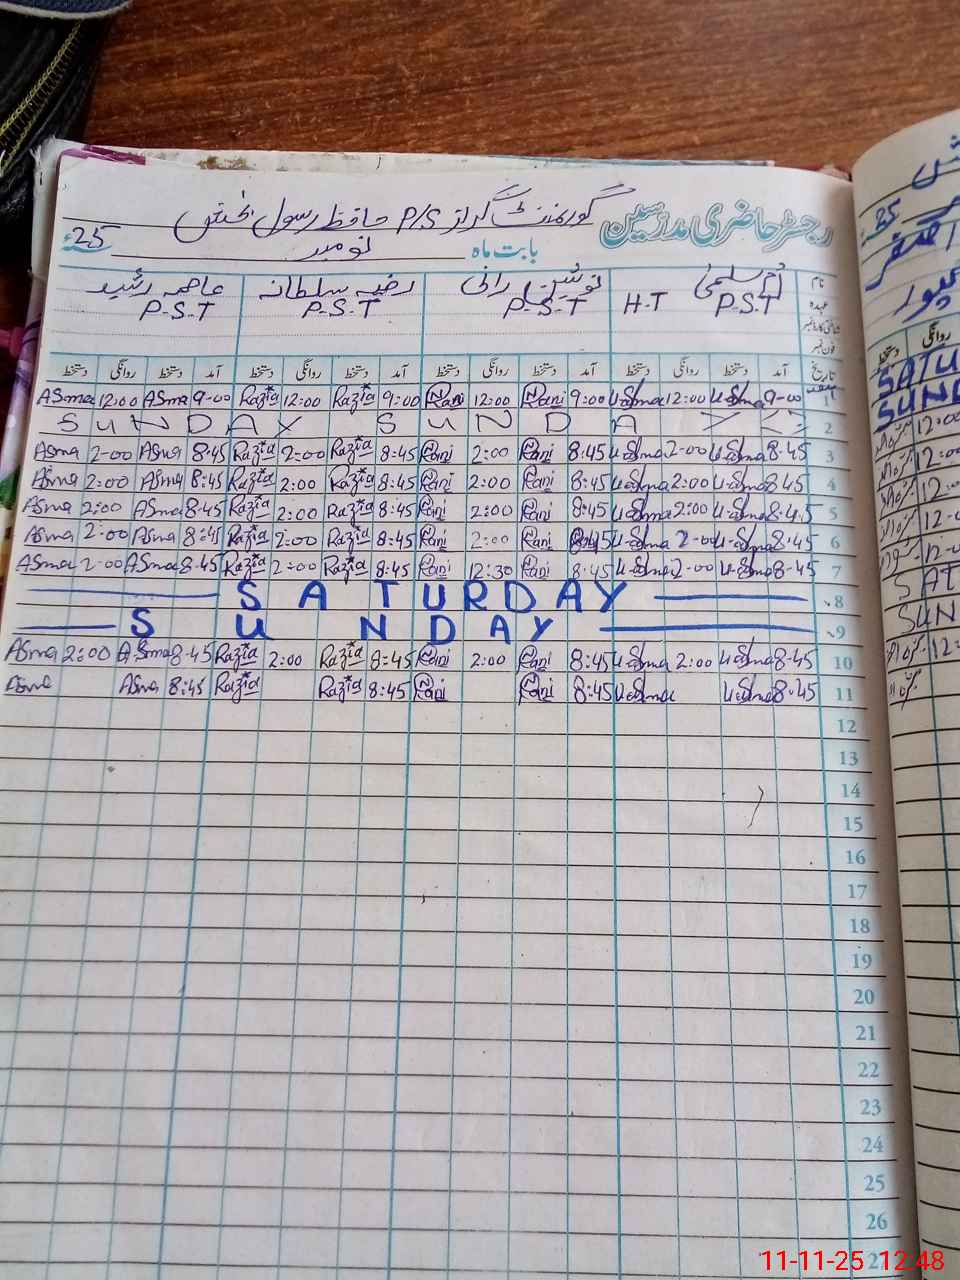 رجسٹر حاضری مدرسین گورنمنٹ گرلز P/S حافظ رسول بخش
بابت ماہ نومبر 25ء
نام ام سلمیٰ رانی رضیہ سلطانہ عاصمہ رشید
عہدہ P.S.T H.T P.S.T P.S.T P.S.T
فون نمبر
تاریخ آمد دستخط روانگی دستخط آمد دستخط روانگی دستخط آمد دستخط روانگی دستخط آمد دستخط روانگی دستخط
ASma 12:00 ASma 9-00 Razia 12:00 Razia 9:00 Rani 12:00 Rani 9:00 12:00 9-00 1
SUNDAY SUNDAY 2
ASma 2-00 ASma 8:45 Razia 2:00 Razia 8:45 Rani 2:00 Rani 8:45 2-00 8:45 3
ASma 2:00 ASma 8:45 Razia 2:00 Razia 8:45 Rani 2:00 Rani 8:45 2:00 8:45 4
ASma 2:00 ASma 8:45 Razia 2:00 Razia 8:45 Rani 2:00 Rani 8:45 2:00 8:45 5
ASma 2:00 ASma 8:45 Razia 2:00 Razia 8:45 Rani 2:00 Rani 2-00 8:45 6
ASma 2-00 ASma 8:45 Razia 2:00 Razia 8:45 Rani 12:30 Rani 8:45 2-00 8-45 7
SATURDAY 8
SUNDAY 9
ASma 2:00 ASma 8-45 Razia 2:00 Razia 8:45 Rani 2:00 Rani 8:45 2:00 8-45 10
ASma ASma 8:45 Razia Razia 8:45 Rani Rani 8:45 8:45 11
12
13
14
15
16
17
18
19
20
21
22
23
24
25
26
27
11-11-25 12:48